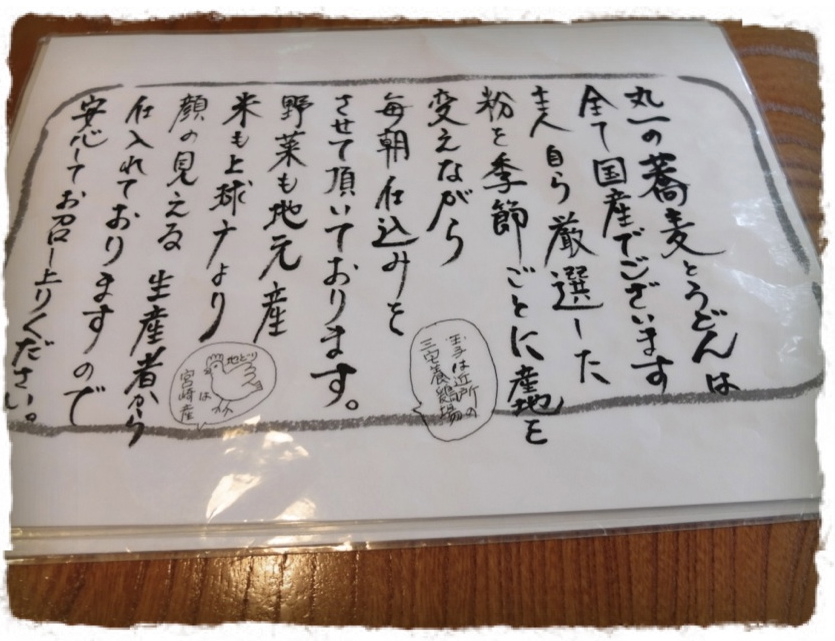 丸一の蕎麦とうどんは
全て国産でございます
主人自ら厳選した
粉を季節ごとに産地を
変えながら
毎朝仕込みを
させて頂いております。
野菜も地元産
米も上球磨より
顔の見える生産者から
仕入れておりますので
安心してお召し上りください。
玉子は近所の
三宅養鶏場
地どり
は
宮崎産